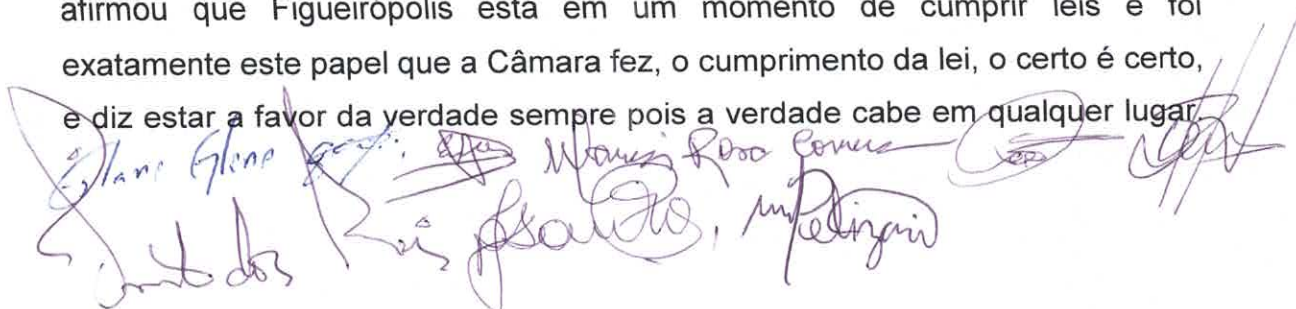 afirmou que Figueirópolis está em um momento de cumprir leis e foi
exatamente este papel que a Câmara fez, o cumprimento da lei, o certo é certo,
e diz estar a favor da verdade sempre pois a verdade cabe em qualquer lugar.
Rosa
dos Reis